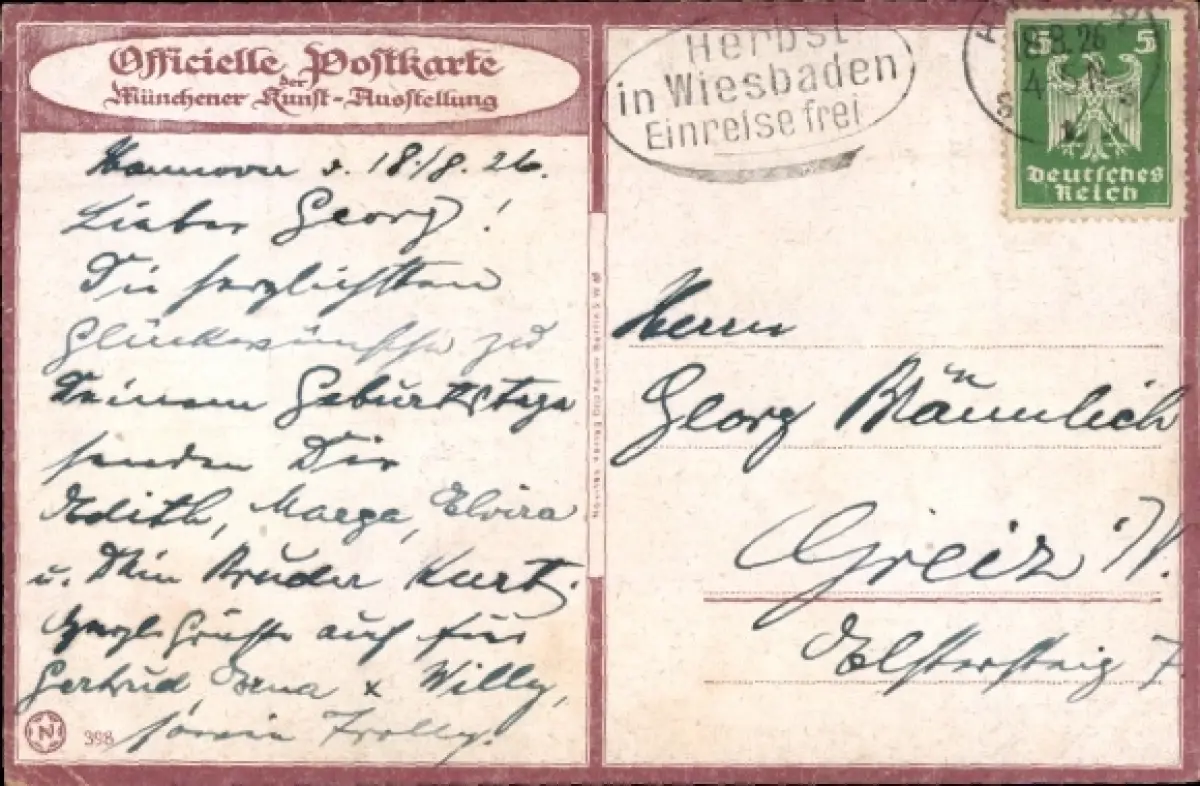 Officielle Postkarte
der
Münchener Kunst-Ausstellung
Hannover d. 18./8. 26.
Lieber Georg!
Die herzlichsten
Glückwünsche zu
Deinem Geburtstage
senden Dir
Edith, Marga, Elvira
u. Dein Bruder Kurt.
Herzl. Grüße auch für
Gertrud Erna x Willy,
sowie Trolly.
N 398
Herbst
in Wiesbaden
Einreise frei
18.8.26
4-5N
5 5
Deutsches
Reich
Herrn
Georg Bräunlich
Greiz i/V.
Elstersteig 7